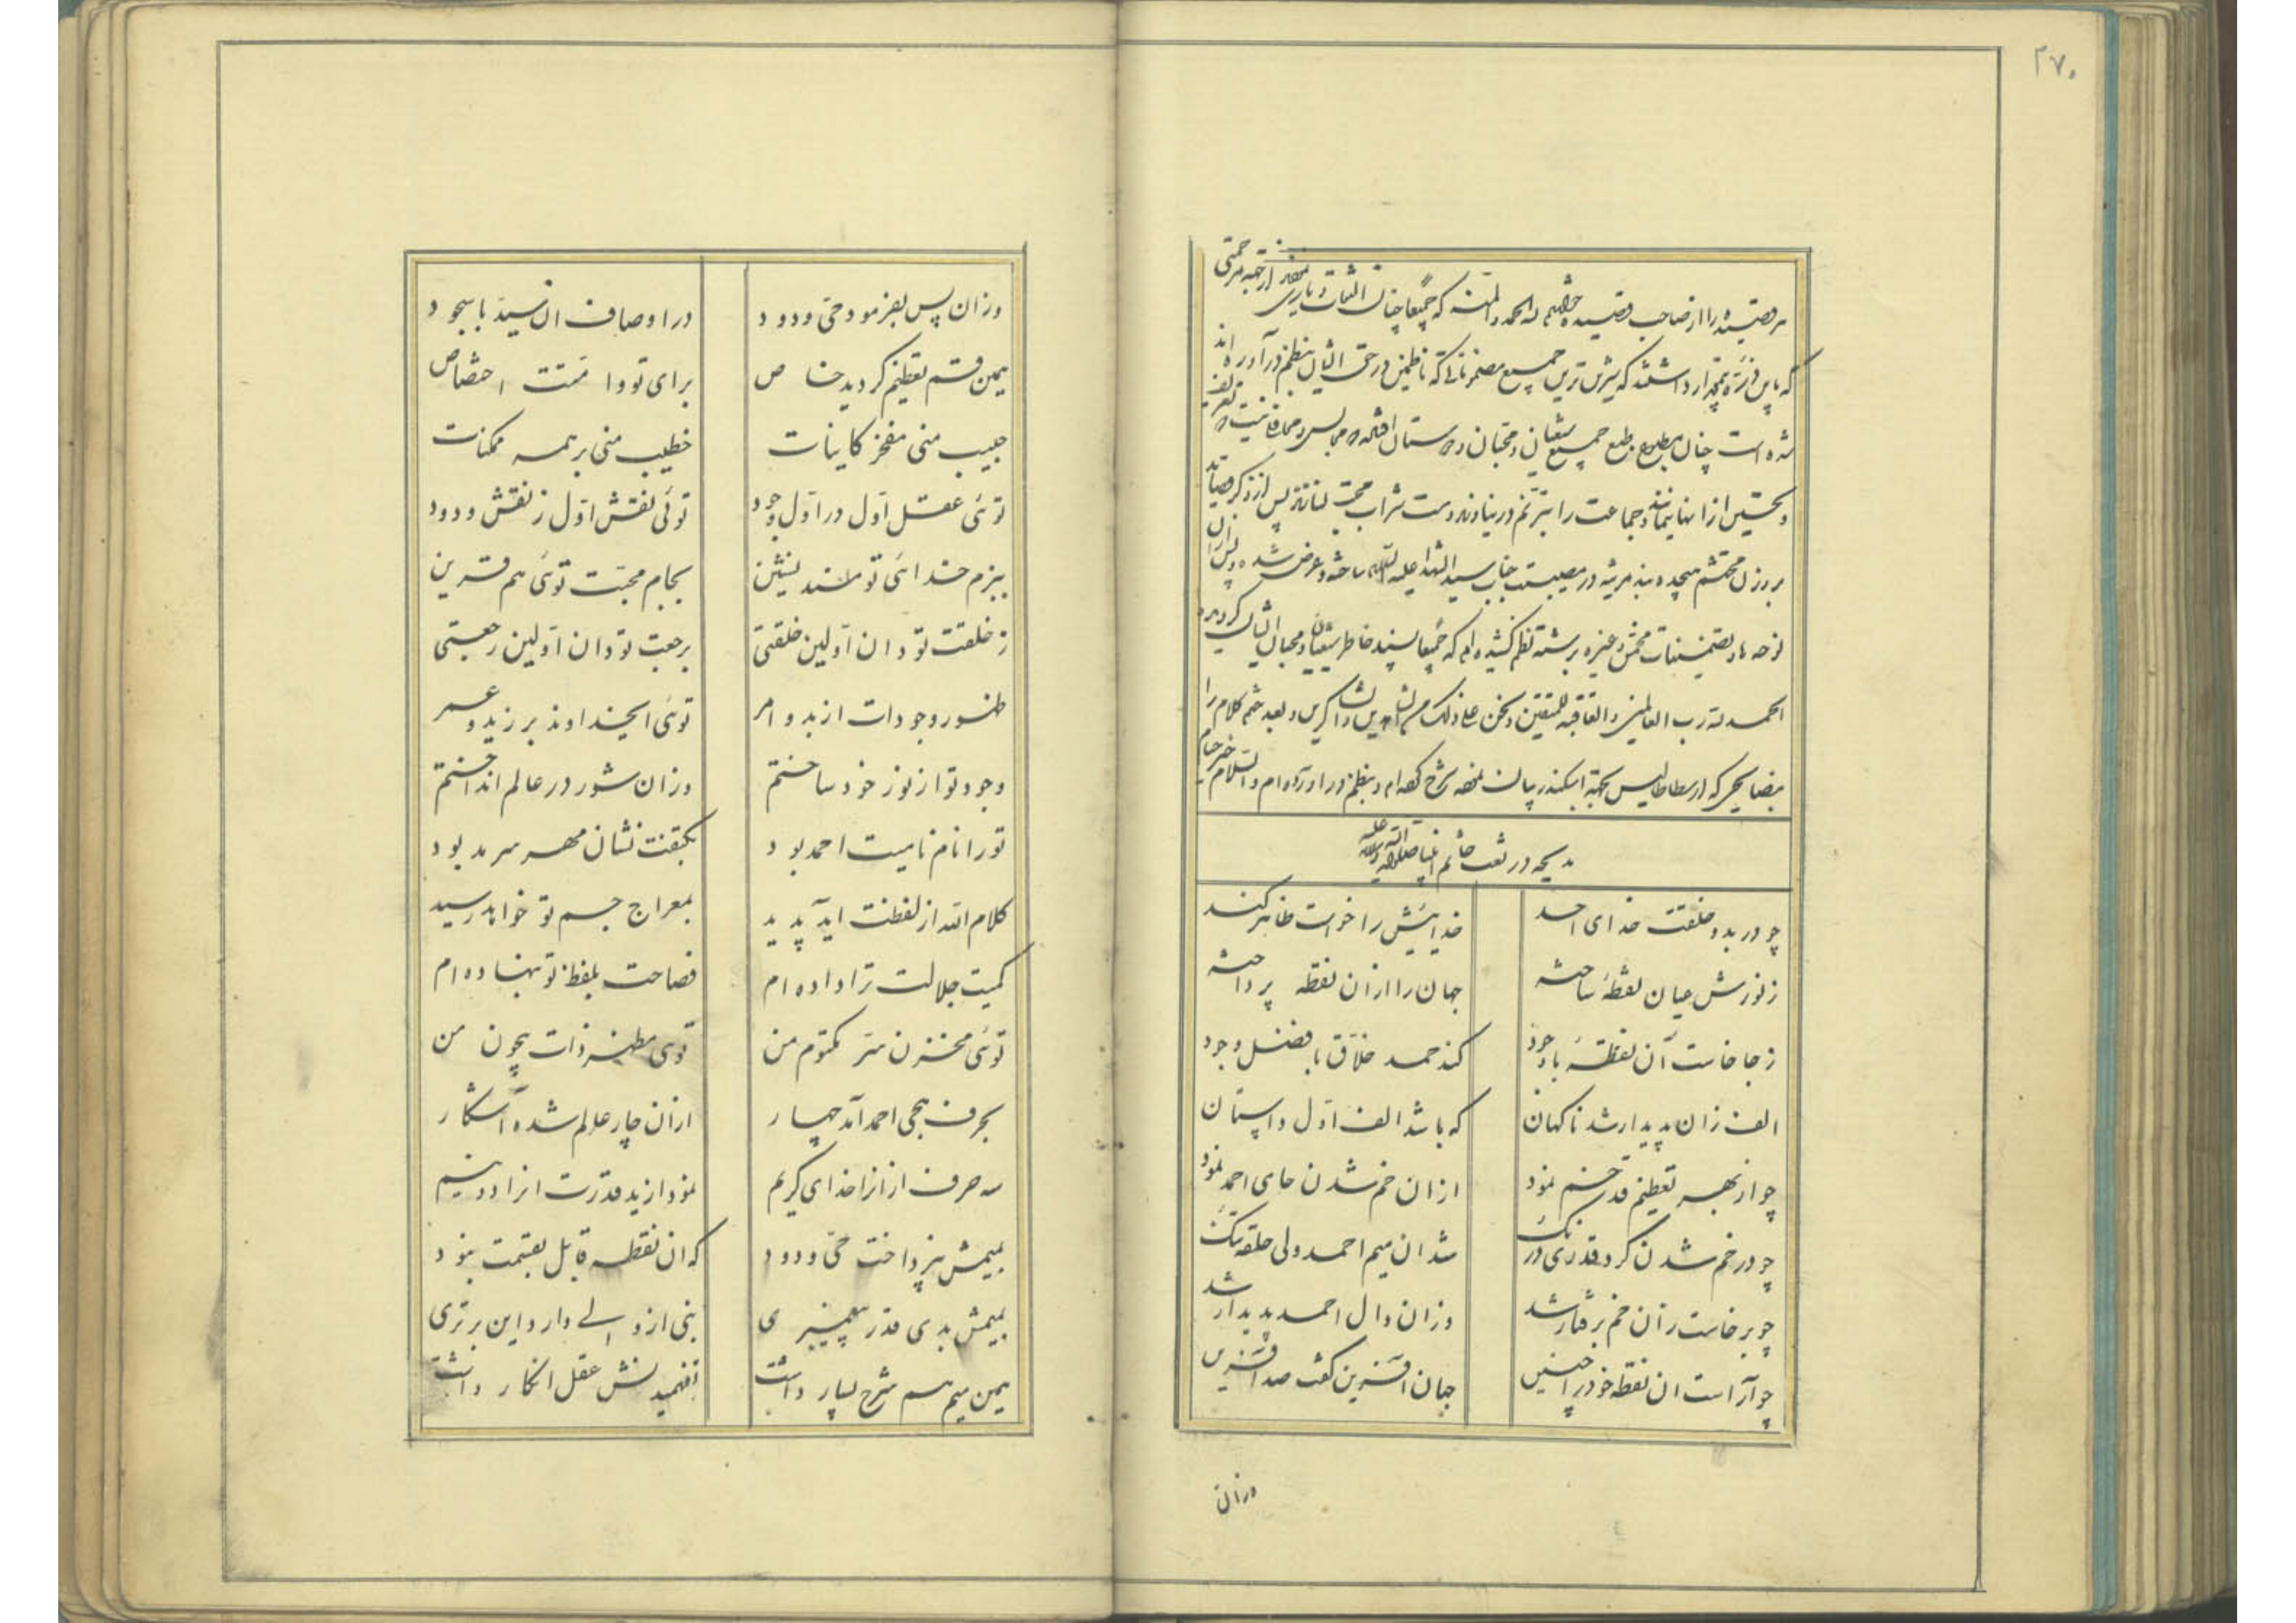 ۲۷۰
هر قصیده را از صاحب قصیده خواهم له الحمد والمنه که جمیعا چنان التفات و یاری
که باین ذره بمقدار داشتند که بیش ترین جمیع مضمونهائی که ناظمین در حق ایشان بنظم در آورده اند
شده است چنان مطبوع طبع جمیع شیعیان و محبان و دوستان افتاده
و تحسین از انها نمانند و جماعت را بترنم در نیاوند و مست شراب محبت پس از ذکر قصاید
بر وزن محتشم هیجده بند مرثیه در مصیبت جناب سید الشهدا علیه السلام ساخته و عرض شده و پس از ان
نوحه ها و تضمینات مخمس و غیره برشته نظم کشیده ام که جمیعا پسند خاطر شیعیان و محبان ایشان گردید
الحمد لله رب العالمین والعاقبة للمتقین ونحن علی ذلک من الشاهدین والشاکرین و بعد ختم کلام را
بنصایحی که ارسطاطالیس بجهة اسکندر بیان نموده شرح کرده ام و بنظم در اورده ام والسلام خیر ختام
مدیحه در نعت خاتم انبیا صلوات الله علیه وآله
چو در بدو خلقت خدای احد خدائیش را خواست ظاهر کند
ز نورش عیان نقطهٔ ساخته جهان را از ان نقطه پرداخته
ز جا خاست آن نقطهٔ باوجود کند حمد خلاق با فضل وجود
الف زان پدیدار شد ناکهان که باشد الف اول داستان
چو از بهر تعظیم قد خم نمود ازان خم شدن حای احمد نمود
چو در خم شدن کرد قدری درنک شد ان میم احمد ولی حلقه تنک
چو برخاست زان خم برفتار شد وزان دال احمد پدیدار شد
چو آراست ان نقطه خود را چنین جهان آفرین کفت صد آفرین
وزان
وزان پس بفرمود حی ودود در اوصاف ان سید با سجود
بمن قسم تعظیم کردید خاص برای تو و امتت اختصاص
حبیب منی مفخر کاینات خطیب منی بر همه ممکنات
توئی عقل اول در اول وجود توئی نقش اول ز نقش ودود
ببزم خدائی تو مسند نشین بجام محبت توئی هم قرین
ز خلقت تو دان اولین خلقتی برجعت تو دان اولین رجعتی
ظهور وجودات از بدو امر توئی ایخداوند بر زید و عمر
وجود تو از نور خود ساختم وزان شور در عالم انداختم
تو را نام نامیت احمد بود بکتفت نشان مهر سرمد بود
کلام الله از لفظت اید پدید بمعراج جسم تو خواهد رسید
کمیت جلالت ترا داده ام فصاحت بلفظ تو بنهاده ام
توئی مخزن سر مکتوم من توئی مظهر ذات بیچون من
بحرف هجی احمد آمد چهار ازان چار عالم شده آشکار
سه حرف از انرا خدای کریم نمود از ید قدرت انرا دو نیم
بمیمش نپرداخت حی ودود که ان نقطه قابل بقسمت نبود
بمیمش بدی قدر پیغمبری نبی از ولی دارد این برتری
بمن میم هم شرح بسیار داشت بفهمیدنش عقل انکار داشت